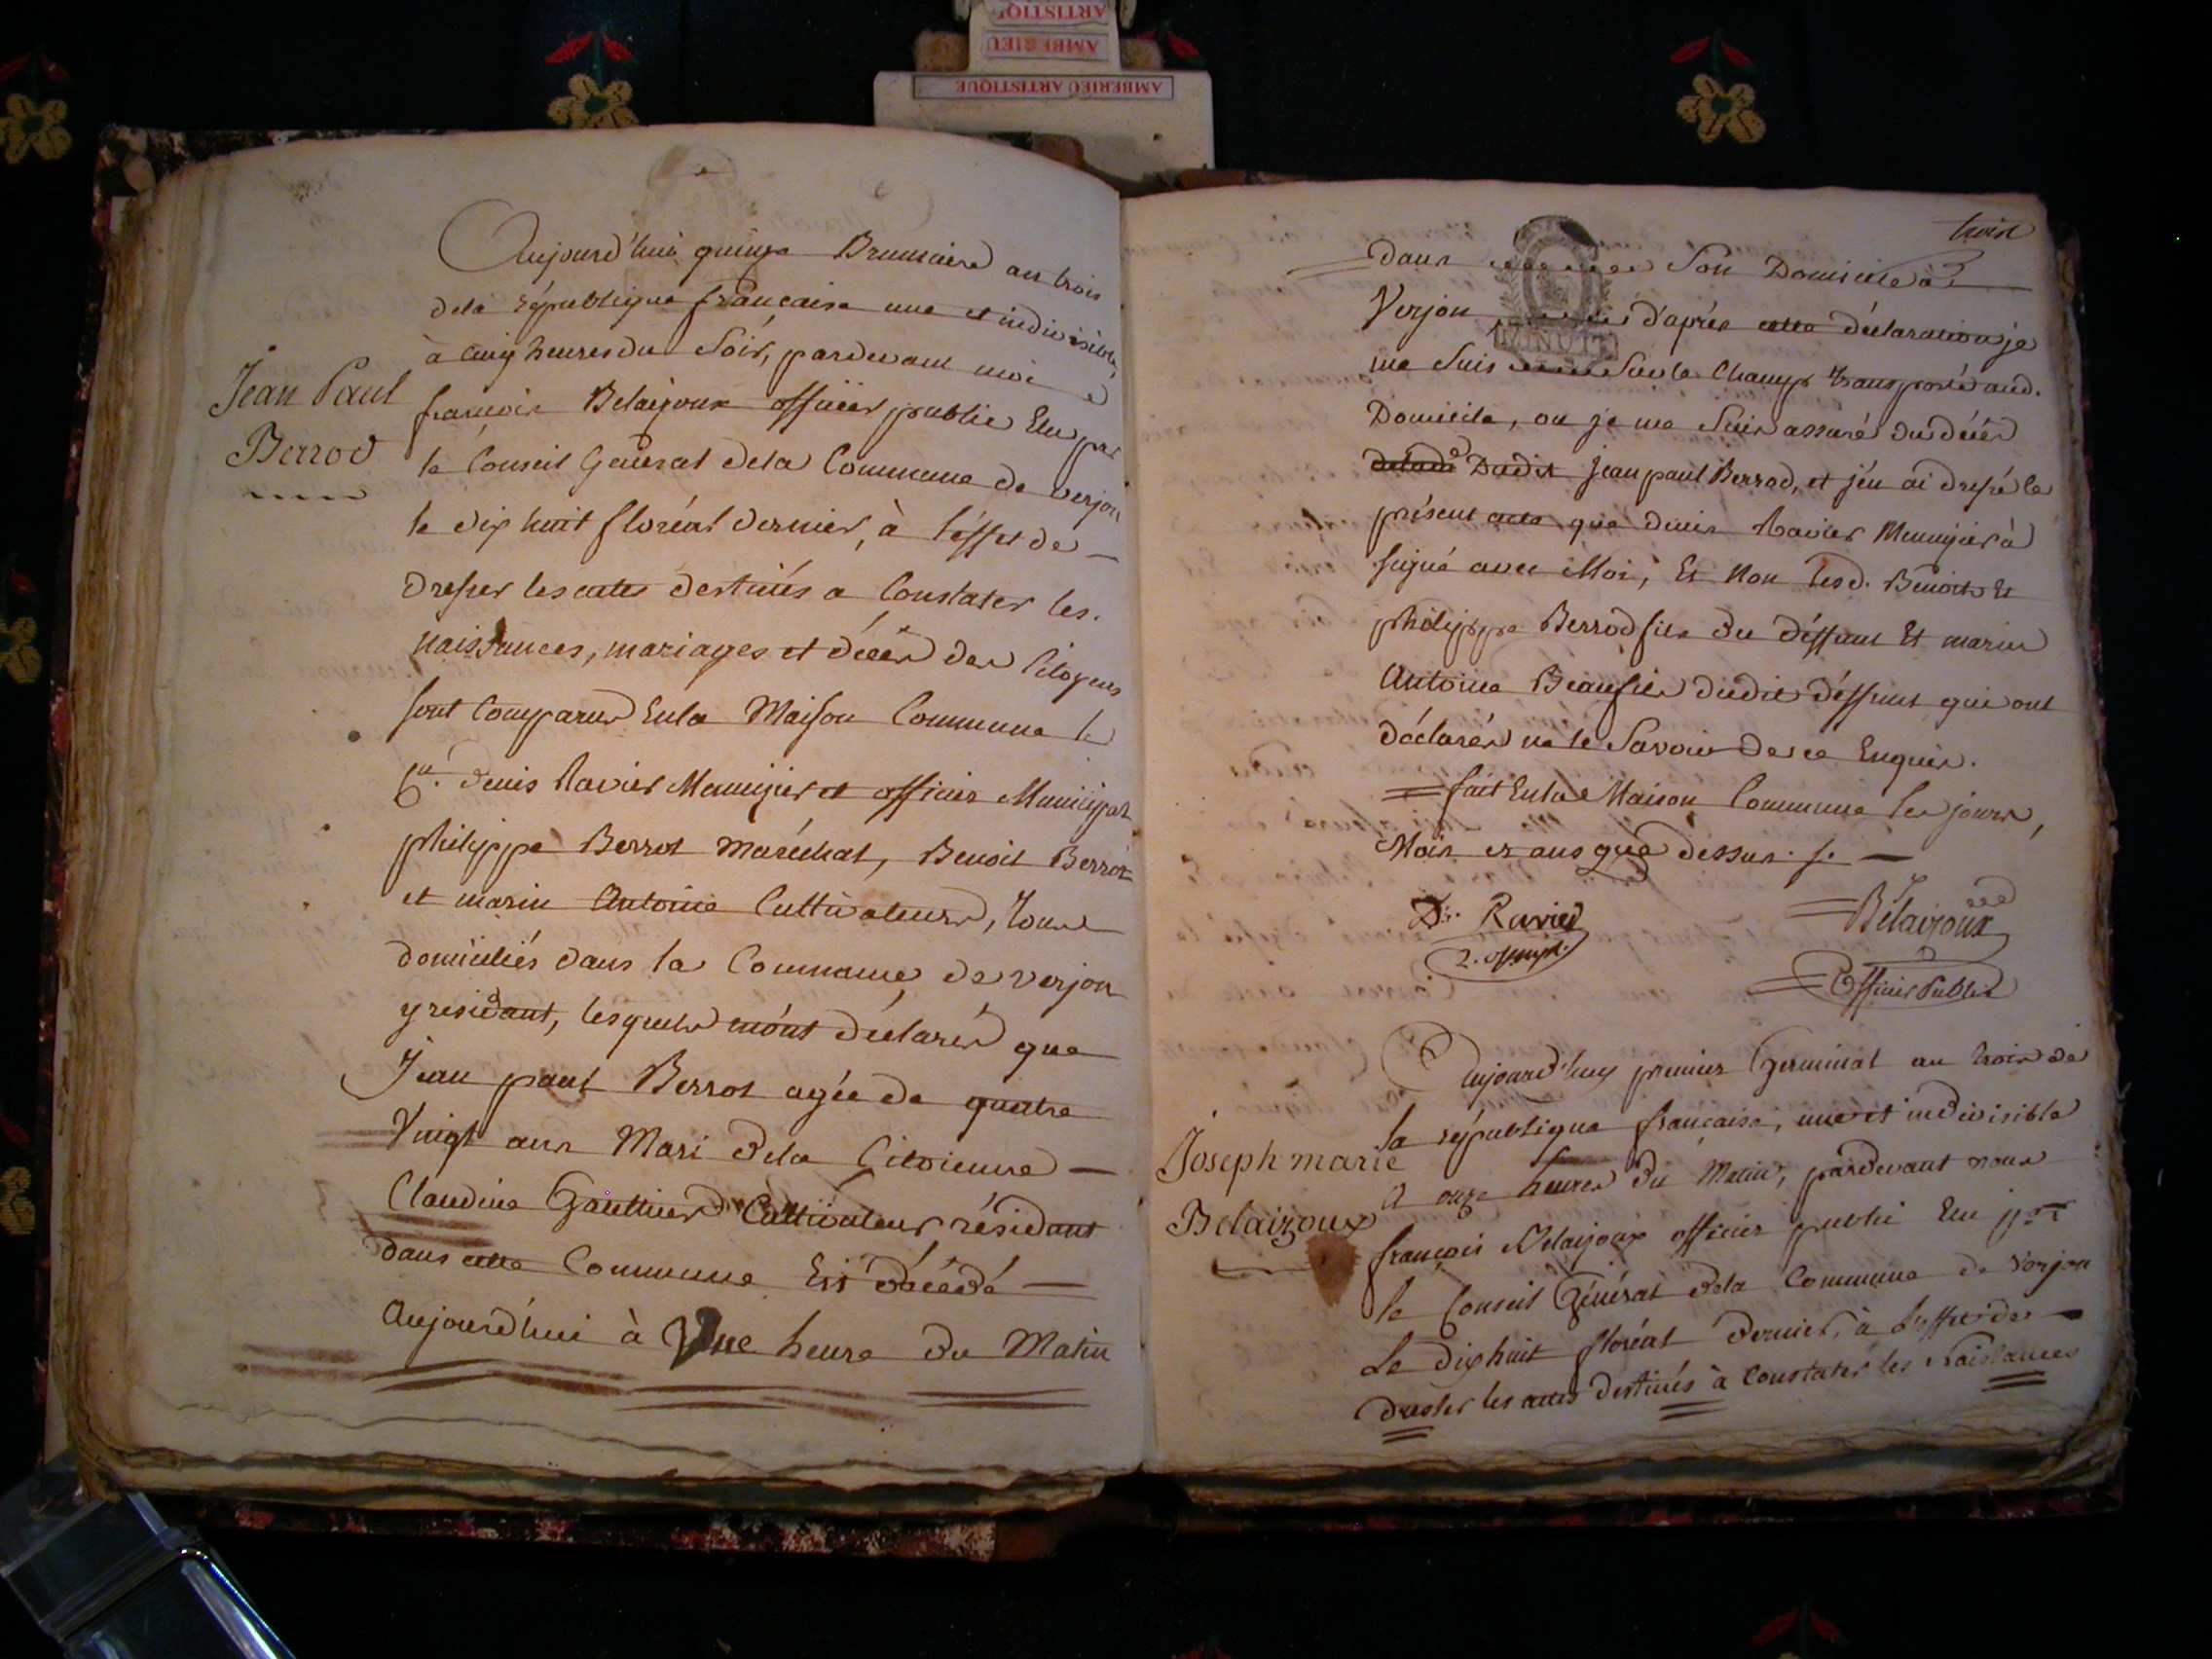 ARTISTIQ
AMBERIEU
AMBERIEU ARTISTIQUE
Aujourd'hui quinze Brumaire an trois
dela république française une et indivisible,
à cinq heures du Soir, pardevant moi
françois Belaizoux officier public Elu par
le Conseil General dela Commune de verjon
le dix huit floréal dernier, à l'éffet de —
dresser les actes destinés a Constater les
naissances, mariages et décès des Citoyens
sont Comparus Enla Maison Commune le
Cen. denis Ravier Meunier et officier Municipal
philippe Berrot maréchal, Benoit Berrot
et marin Antoine Cultivateurs, tous
domiciliés dans la Commune de verjon
y residant, lesquels m'ont déclarés que
Jean paul Berrot agée de quatre
Vingt ans Mari dela Citoienne —
Claudine Gauthier Cultivateur résidant
dans cette Commune Est décédé —
Aujourd'hui à Une heure du Matin
Jean Paul
Berrod
trois
dans Son Domicile à
Verjon d'après cette déclaration je
me Suis Sur le Champ transporté aud.
Domicile, ou je me Suis assuré du décès
Dudit jean paul Berrod, et j'en ai dressé le
présent acte que denis Ravier Meunier à
signé avec Moi, Et Non lesd. Benoit Et
philippe Berrod fils du déffunt Et marin
Antoine Beaufils dudit déffunt qui ont
déclarés ne le Savoir de ce Enquis.
fait Enla Maison Commune les jours,
Mois et ans que dessus. —
Ds. Ravier
Belaizoux
Officier Public
Aujourd'huy premier Germinal an trois de
la république française, une et indivisible
a onze heures du Matin, pardevant nous
françois Belaizoux officier public Elu par
le Conseil Général dela Commune de Verjon
Le dix huit floréal dernier, à L'effet de —
dresser les actes destinés à Constater les Naissances
Joseph marie
Belaizoux